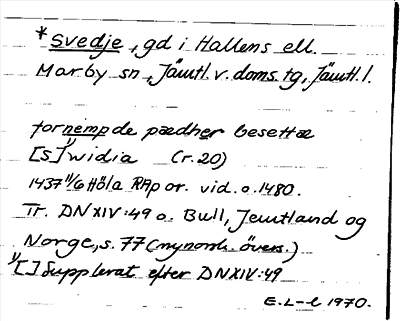 *Svedje, gd i Hallens ell.
Marby sn, Jämtl. v. doms. tg, Jämtl. l.
fornempde pædher besettæ
[S]¹⁾widia (r. 20)
1437 11/6 Höla RAp or. vid. o. 1480.
Tr. DN XIV:49 o. Bull, Jemtland og
Norge, s. 77 (mynorsk. övers.)
¹⁾[ ] Supplerat efter DN XIV:49
E. L-l 1970.